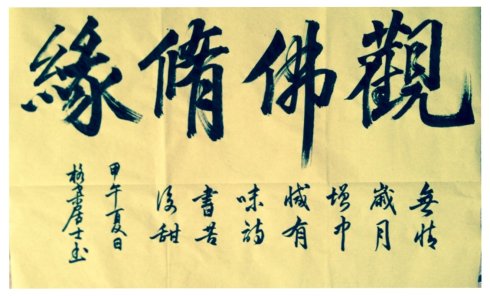 觀佛脩緣
無情
歲月
增中
減有
味詩
書苦
後甜
甲午夏日
居士玉